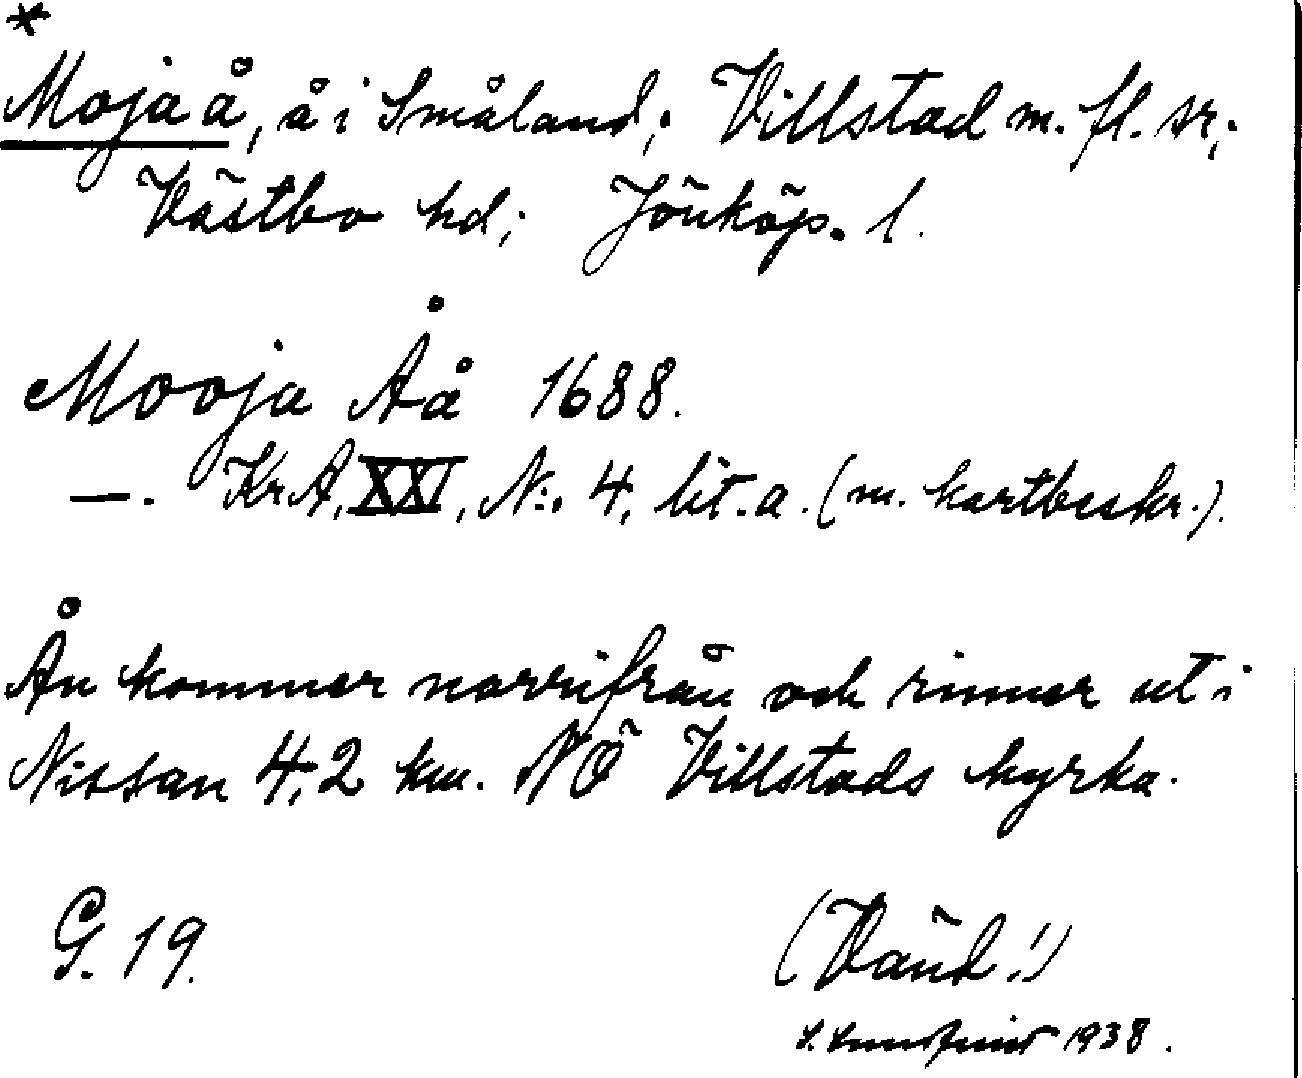 *
Moja å, å i Småland; Villstad m. fl. sr,;
Västbo hd; Jönköp. l.
Mooja Åå 1688.
—. KrA, XXI, N:. 4, lit. a. (m. kartbeskr.).
Ån kommer norrifrån och rinner ut i
Nissan 4,2 km. NÖ Villstads kyrka.
G. 19.
(Vänd!)
1938.